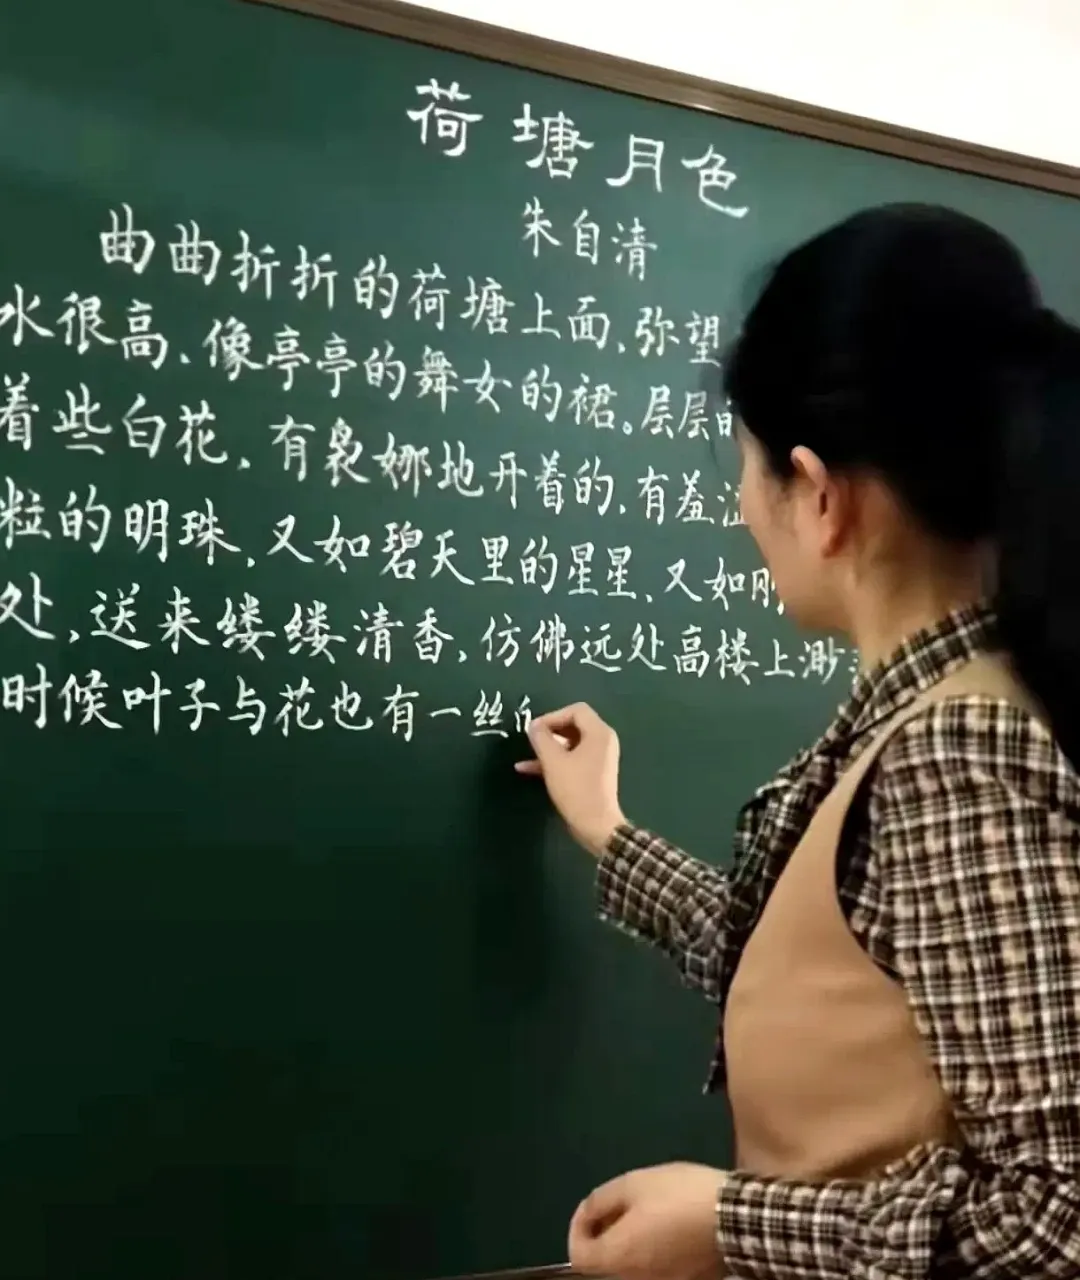 荷塘月色
朱自清
曲曲折折的荷塘上面、弥望
水很高、像亭亭的舞女的裙。层层的
着些白花,有袅娜地开着的,有羞涩
粒的明珠,又如碧天里的星星、又如刚
处,送来缕缕清香,仿佛远处高楼上渺
时候叶子与花也有一丝的